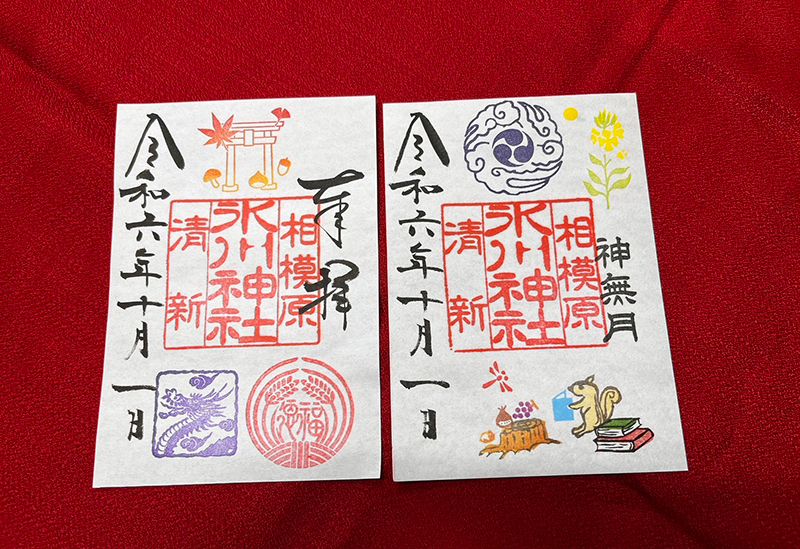 奉拝
相模原
氷川神社
清新
令和六年十月一日
福
神無月
相模原
氷川神社
清新
令和六年十月一日